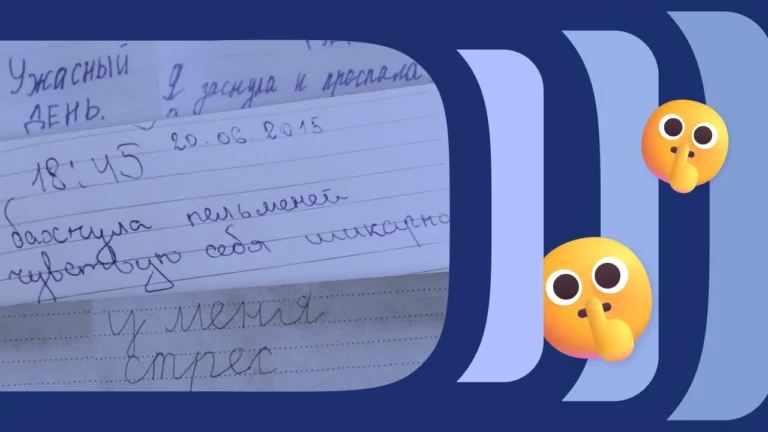 Ужасный
ДЕНЬ.
Я заснула и проспала
18:45 20.06 2015
бахнула пельменей
чувствую себя шикарно
у меня
стрес